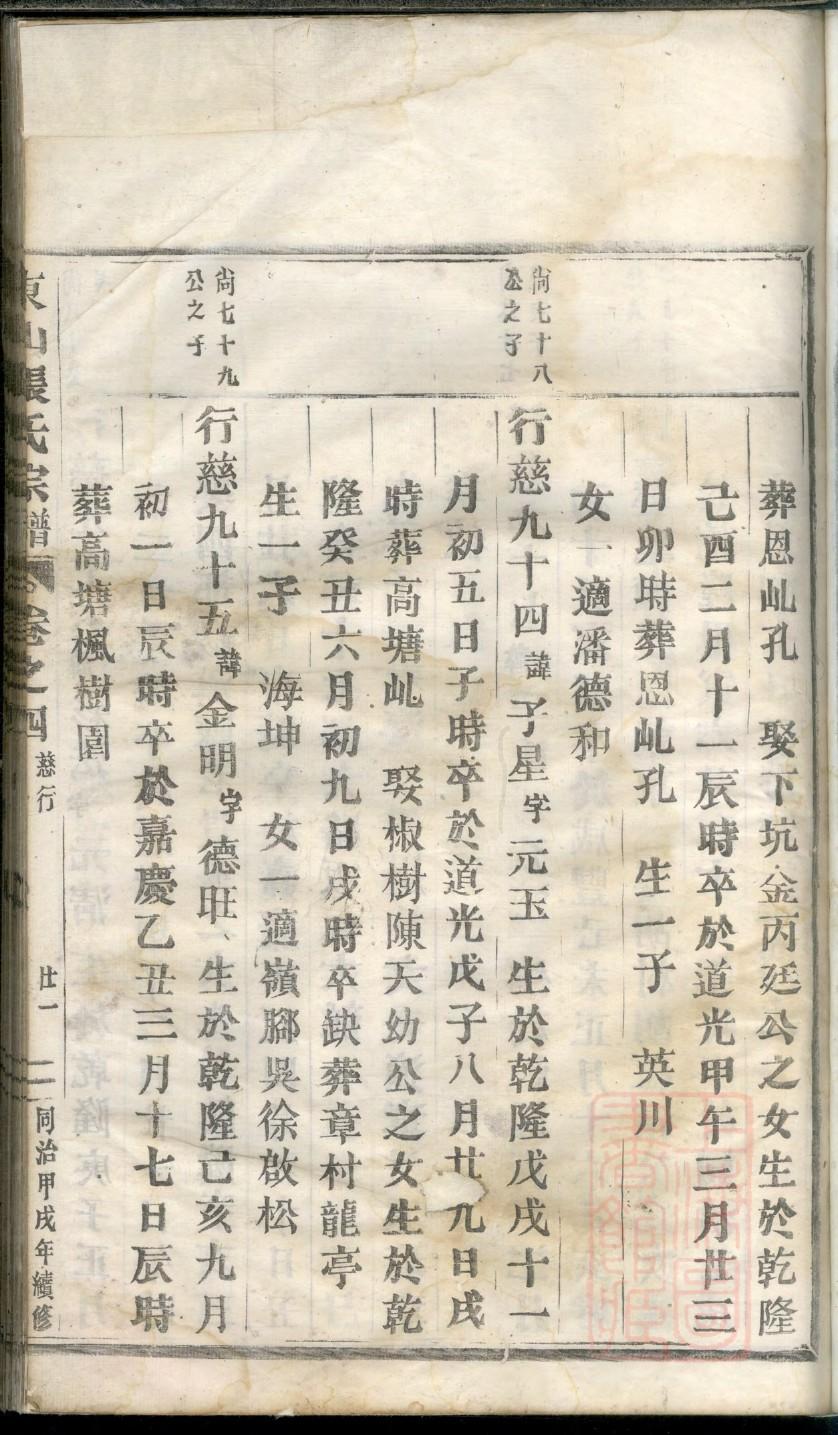 葬恩乢孔　娶下坑金丙廷公之女生於乾隆
己酉二月十一辰時卒於道光甲午三月廿三
日卯時葬恩乢孔　生一子　英川
女一適潘德和
尚七十八
公之子
行慈九十四諱子星字元玉　生於乾隆戊戌十一
月初五日子時卒於道光戊子八月廿九日戌
時葬高塘乢　娶椒樹陳天幼公之女生於乾
隆癸丑六月初九日戌時卒缺葬章村龍亭
生一子　海坤　女一適嶺腳吳徐啟松
尚七十九
公之子
行慈九十五諱金明字德旺　生於乾隆己亥九月
初一日辰時卒於嘉慶乙丑三月十七日辰時
葬高塘楓樹園
東山張氏宗譜　卷之四　慈行　廿一　同治甲戌年續修